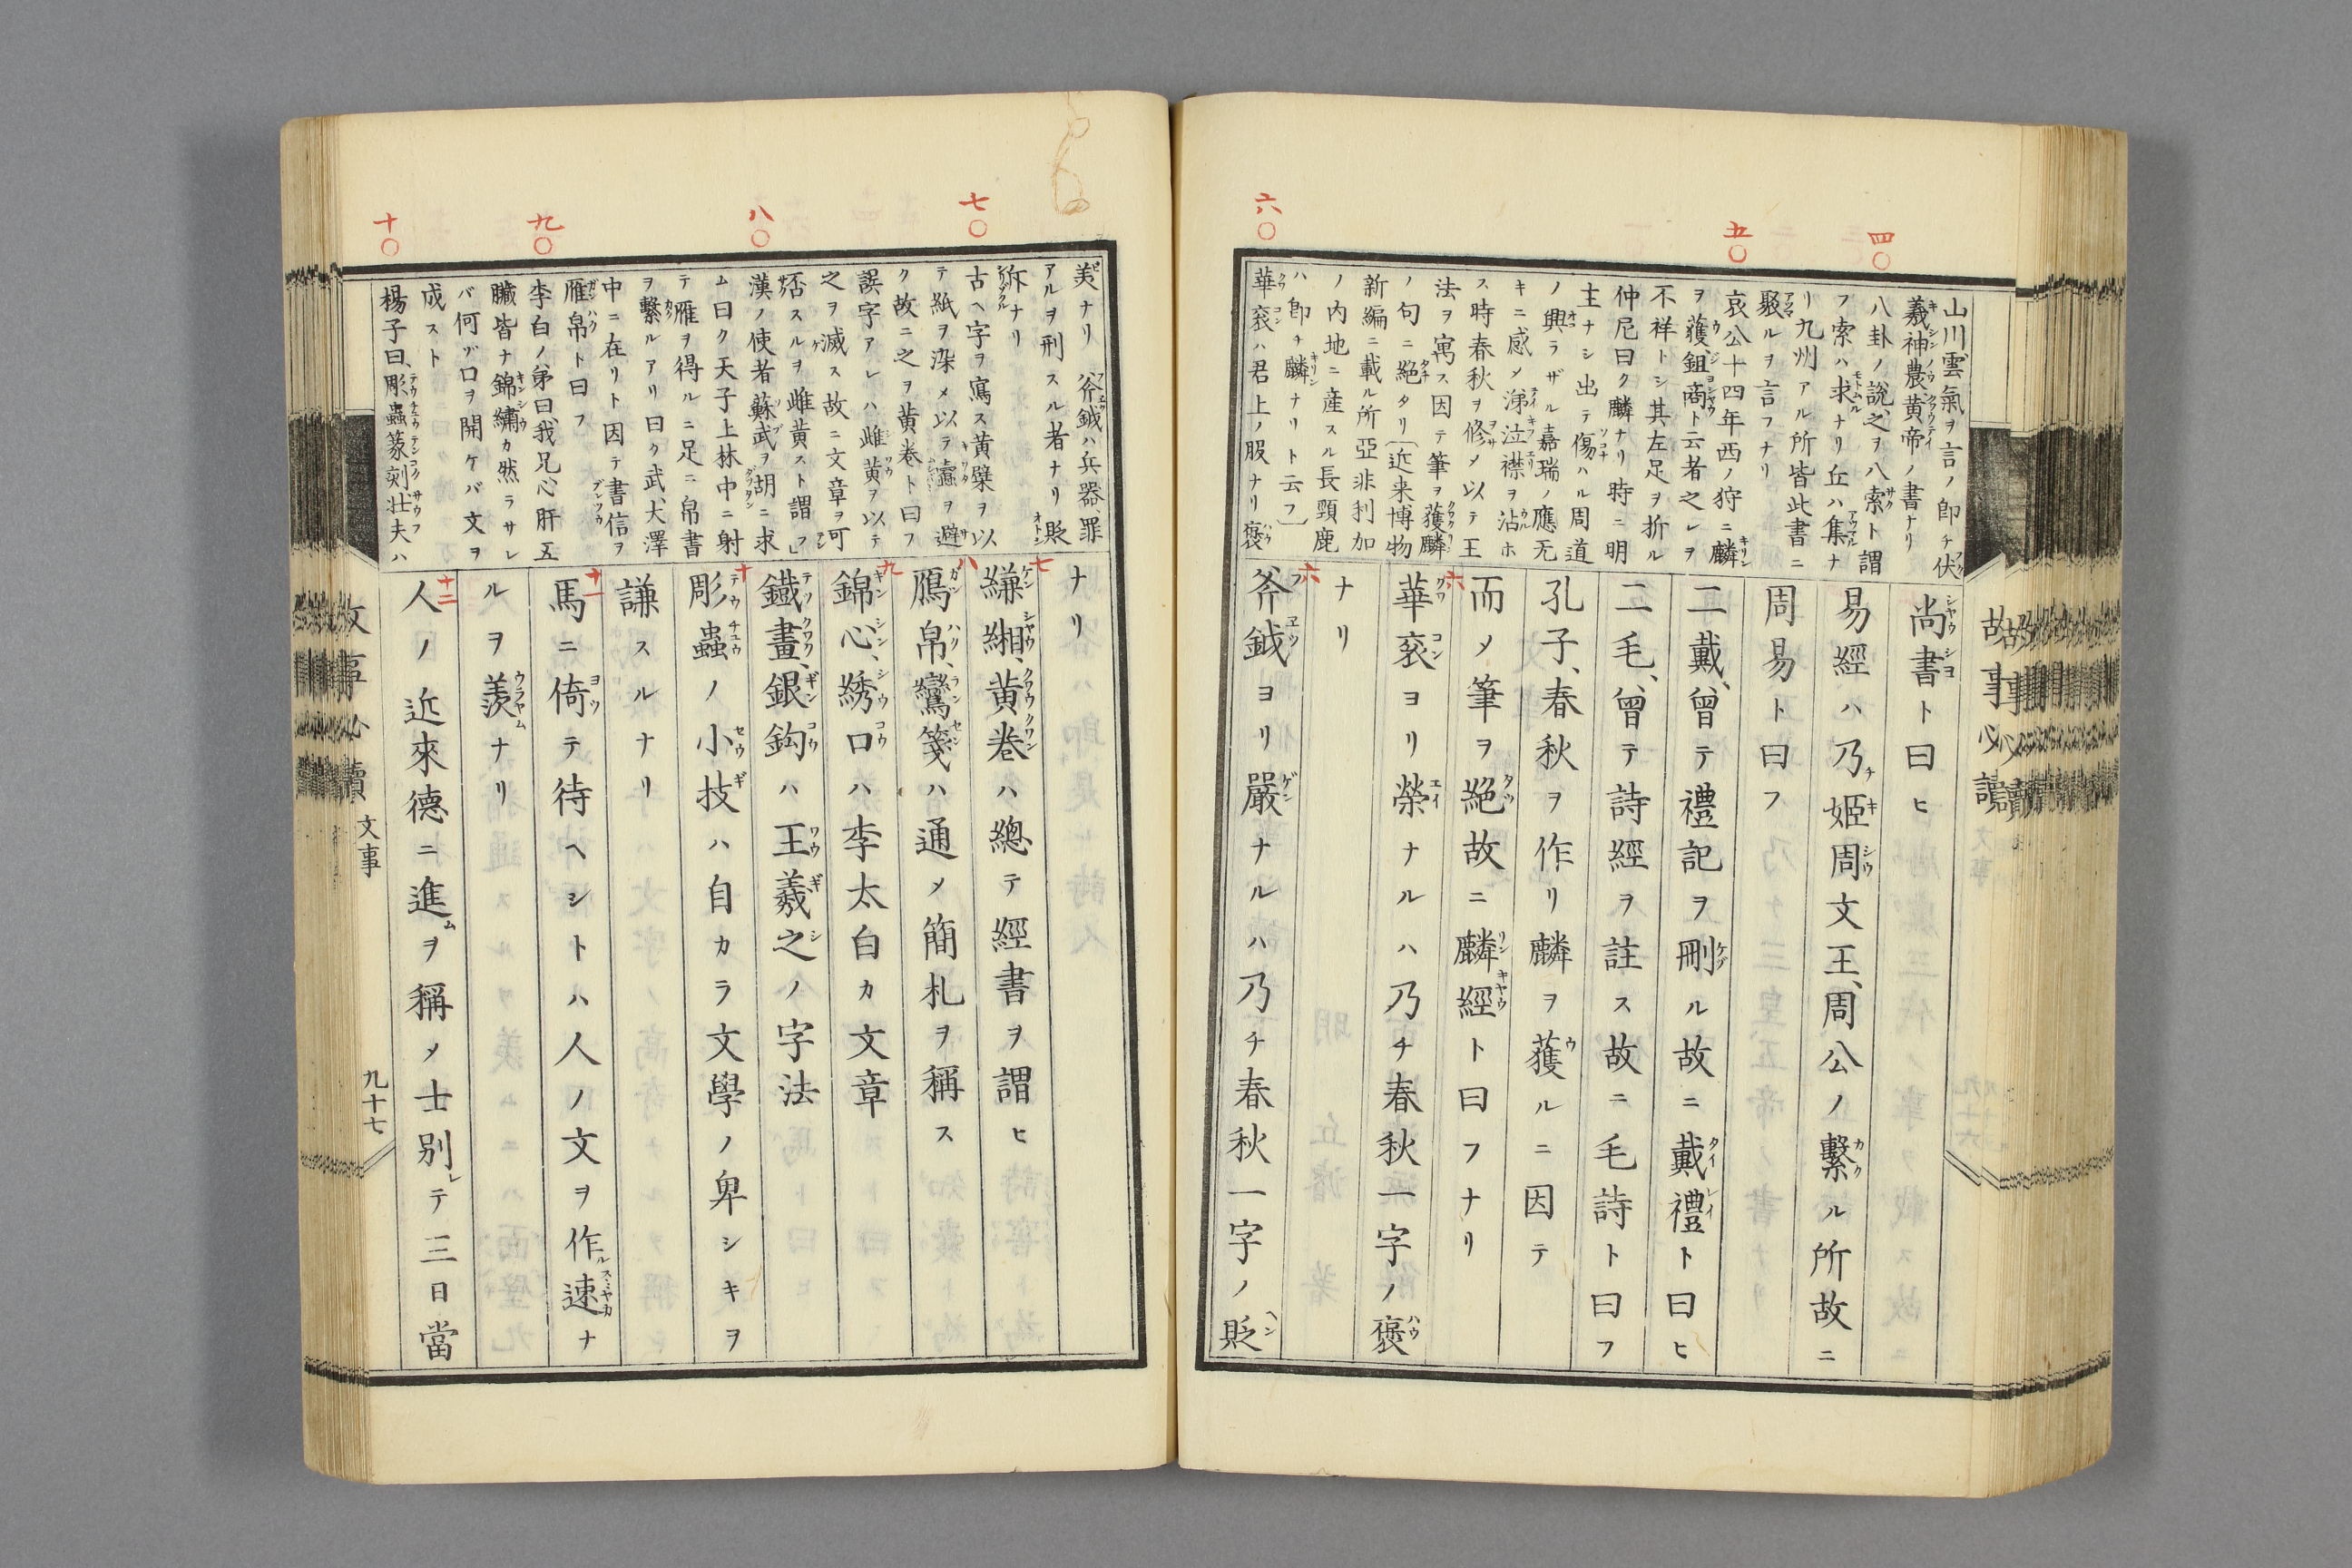 四〇
五〇
六〇
山川雲氣ヲ言ノ卽チ伏
羲神農黄帝ノ書ナリ
八卦ノ說、之ヲ八索ト謂
フ索ハ求ナリ丘ハ集ナ
リ九州アル所皆此書ニ
聚ルヲ言フナリ
哀公十四年西ノ狩ニ麟
ヲ獲鉏商ト云者之レヲ
不祥トシ其左足ヲ折ル
仲尼曰ク麟ナリ時ニ明
主ナシ出テ傷ハル周道
ノ興ラザル嘉瑞ノ應无
キニ感メ涕泣襟ヲ沾ホ
ス時春秋ヲ修メ以テ王
法ヲ寓ス因テ筆ヲ獲麟
ノ句ニ絕タリ〔近来博物
新編ニ載ル所亞非利加
ノ內地ニ産スル長頸鹿
ハ卽チ麟ナリト云フ〕
華衮ハ君上ノ服ナリ褒
尚書ト曰ヒ
易經ハ乃チ姬周文王、周公ノ繫ル所故ニ
周易ト曰フ
二戴、曾テ禮記ヲ刪ル故ニ戴禮ト曰ヒ
二毛、曾テ詩經ヲ註ス故ニ毛詩ト曰フ
孔子、春秋ヲ作リ麟ヲ獲ルニ因テ
而メ筆ヲ絕故ニ麟經ト曰フナリ
六
華衮ヨリ榮ナルハ乃チ春秋一字ノ褒
ナリ
六
斧鉞ヨリ嚴ナルハ乃チ春秋一字ノ貶
故事必讀
七〇
八〇
九〇
十〇
美ナリ 斧鉞ハ兵器、罪
アルヲ刑スル者ナリ貶
斥ナリ
古ヘ字ヲ寫ス黄檗ヲ以
テ紙ヲ染メ以テ蠧ヲ避
ク故ニ之ヲ黄巻ト曰フ
誤字アレハ雌黄ヲ以テ
之ヲ滅ス故ニ文章ヲ可
否スルヲ雌黄スト謂フ
漢ノ使者蘇武ヲ胡ニ求
ム曰ク天子上林中ニ射
テ雁ヲ得ルニ足ニ帛書
ヲ繫ルアリ曰ク武、大澤
中ニ在リト因テ書信ヲ
雁帛ト曰フ
李白ノ弟曰、我兄、心肝五
臟皆ナ錦繡カ然ラサレ
バ何ゾ口ヲ開ケバ文ヲ
成スト
楊子曰、彫蟲篆刻壮夫ハ
ナリ
七
縑緗、黄巻ハ總テ經書ヲ謂ヒ
八
鴈帛、鸞箋ハ通メ簡札ヲ稱ス
九
錦心、綉口ハ李太白カ文章
鐵畫、銀鉤ハ王羲之ノ字法
十
彫蟲ノ小技ハ自カラ文學ノ卑シキヲ
謙スルナリ
十一
馬ニ倚テ待ヘシトハ人ノ文ヲ作ル速ナ
ルヲ羨ナリ
十二
人ノ近來德ニ進ムヲ稱メ士別レテ三日當
故事必讀 文事 九十七